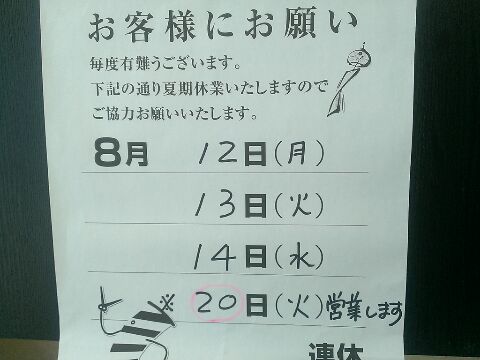 お客様にお願い
毎度有難うございます。
下記の通り夏期休業いたしますので
ご協力お願いいたします。
8月 12日(月)
13日(火)
14日(水)
※ 20日(火)営業します
連休